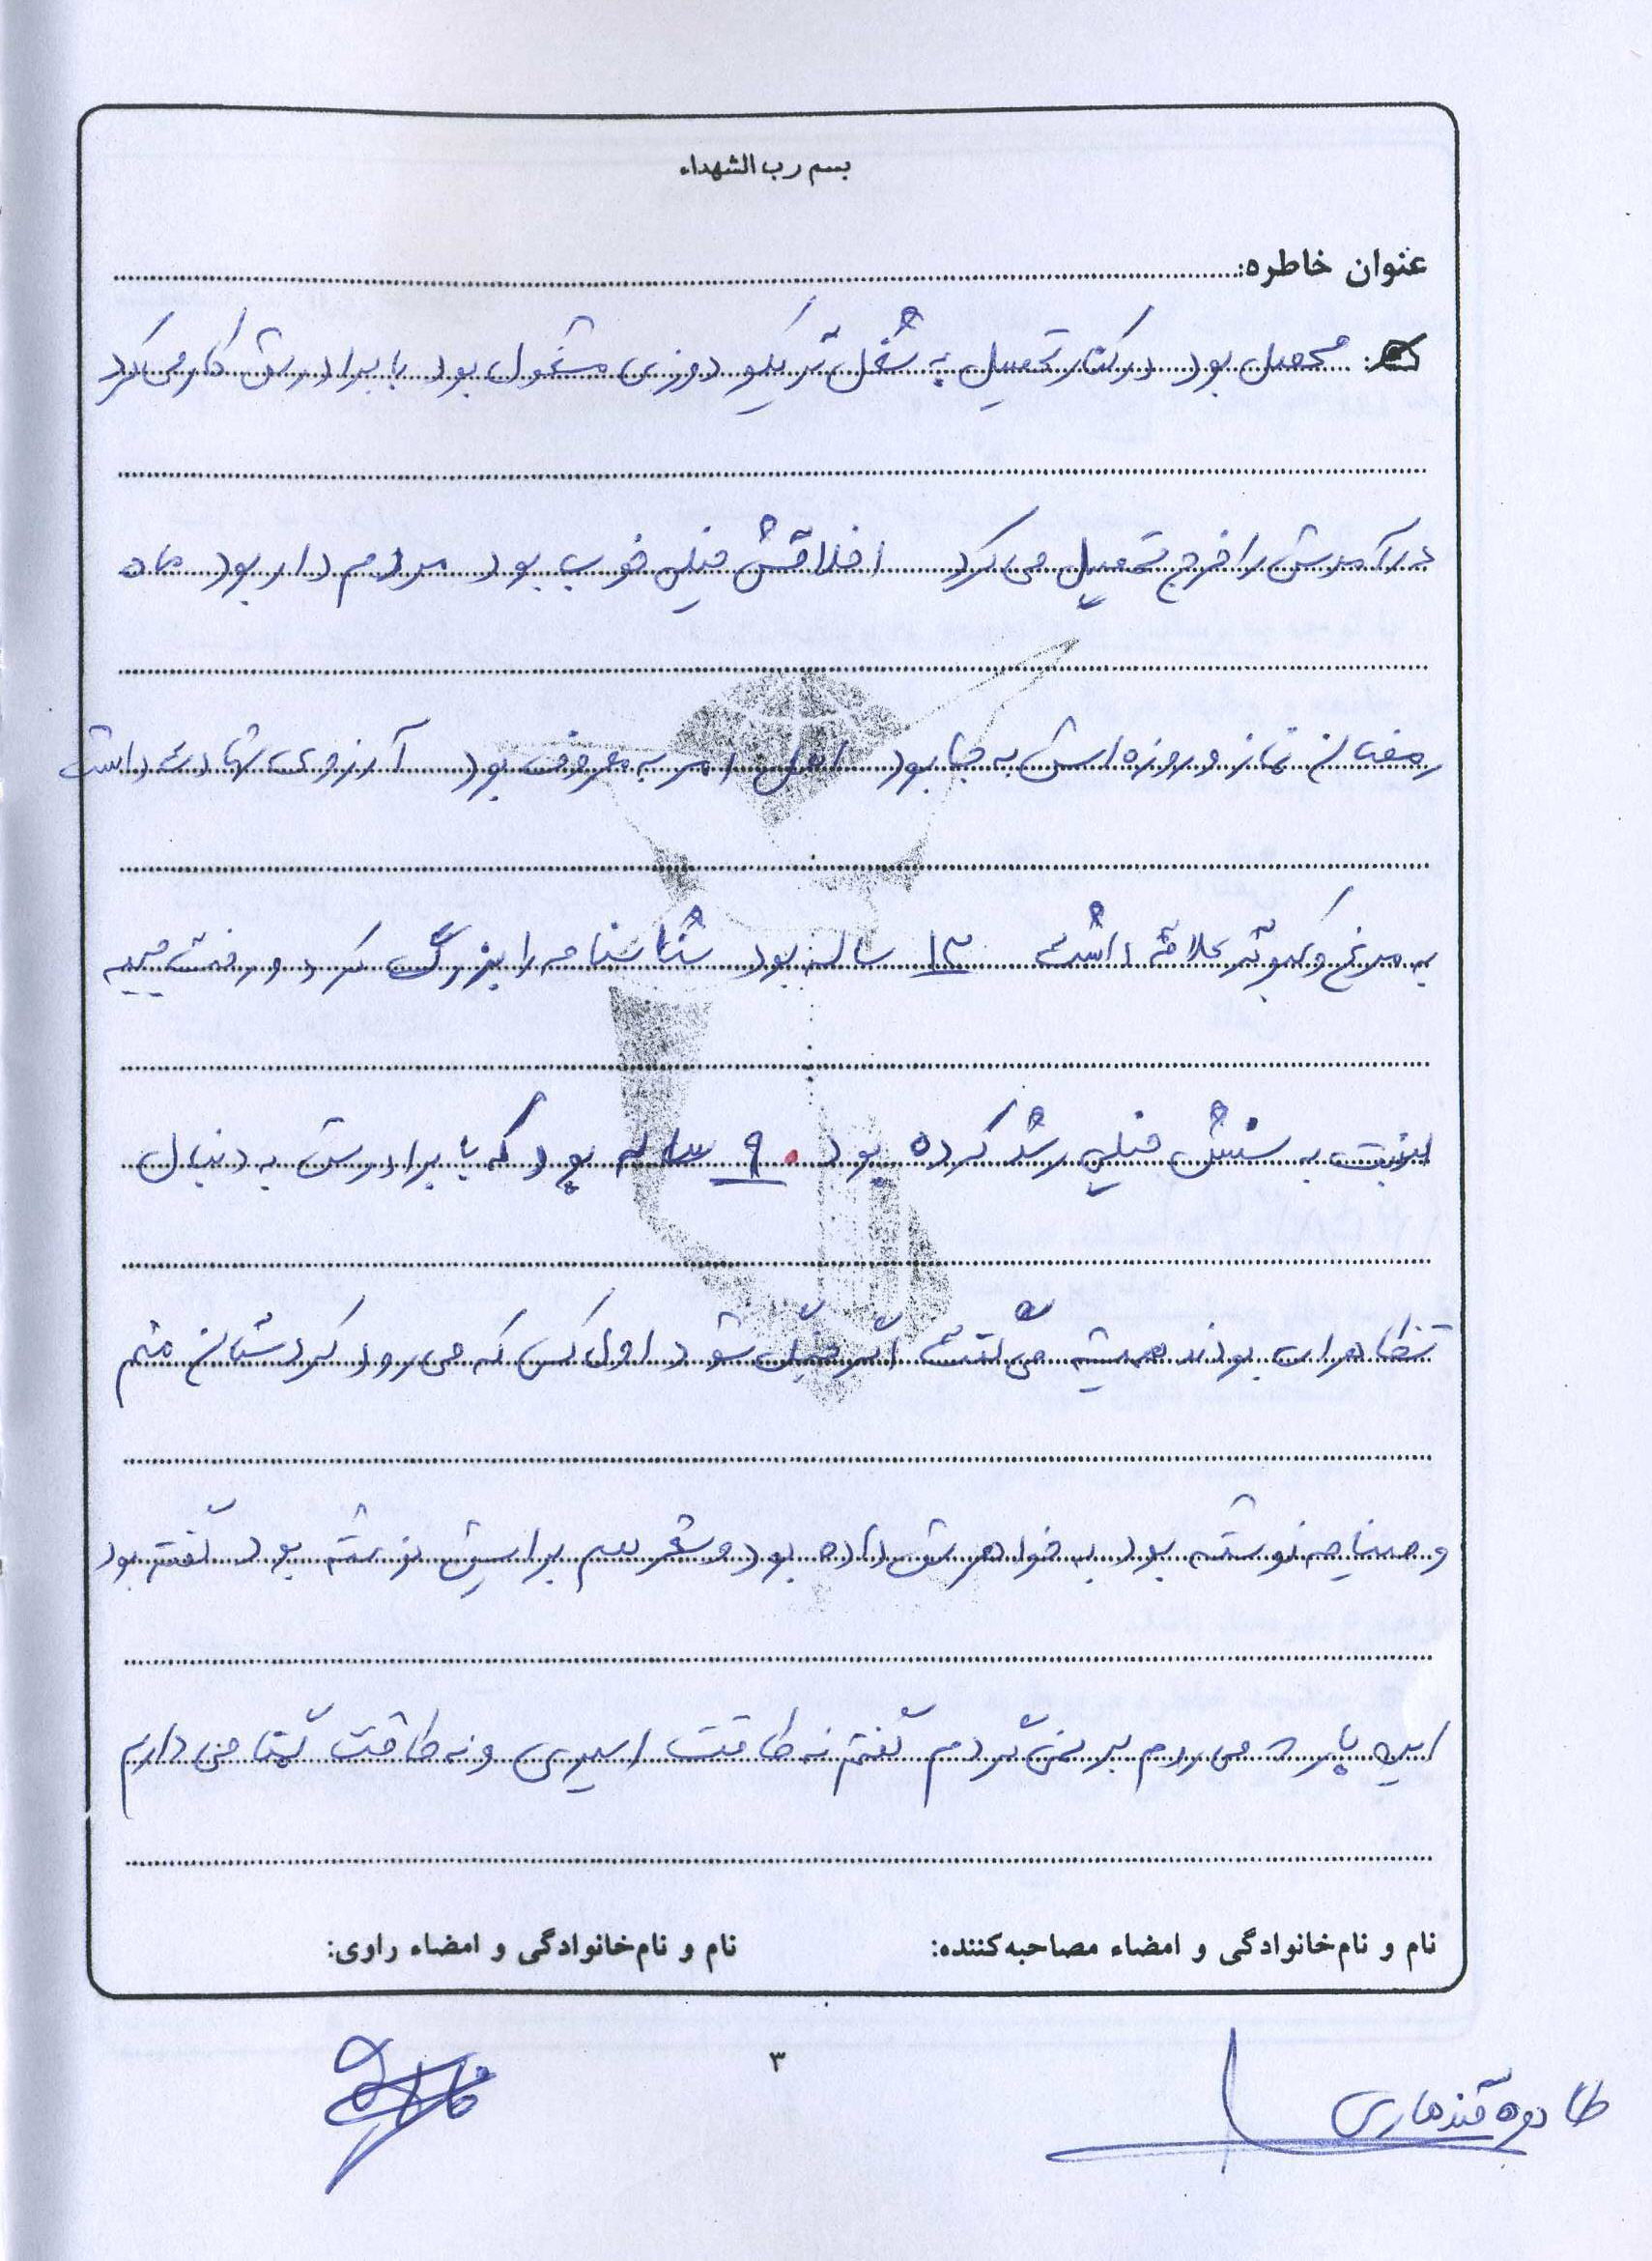 بسم رب الشهداء
عنوان خاطره:
محصل بود در کنار تحصیل به شغل تریکو دوزی مشغول بود با برادرش کار می کرد
درآمدش را خرج تحصیل می کرد اخلاقش خیلی خوب بود مردم دار بود ماه
رمضان نماز و روزه اش به جا بود اهل امر به معروف بود آرزوی شهادت داشت
به مرغ و کبوتر علاقه داشت ۱۳ ساله بود شناسنامه را بزرگ کرد و رفت جبهه
نسبت به سنش خیلی رشد کرده بود ۹ ساله بود که با برادرش به دنبال
تظاهرات بودند همیشه می گفت اگر جنگ شود اول کس که می رود کردستان منم
وصیتنامه نوشته بود به خواهرش داده بود و شعر هم برایش نوشته بود گفته بود
این بار می روم بر نمی گردم گفتم نه طاقت اسیری و نه طاقت گمنامی دارم
نام و نام‌خانوادگی و امضاء مصاحبه‌کننده:
نام و نام‌خانوادگی و امضاء راوی:
۳
طاهره قندهاری